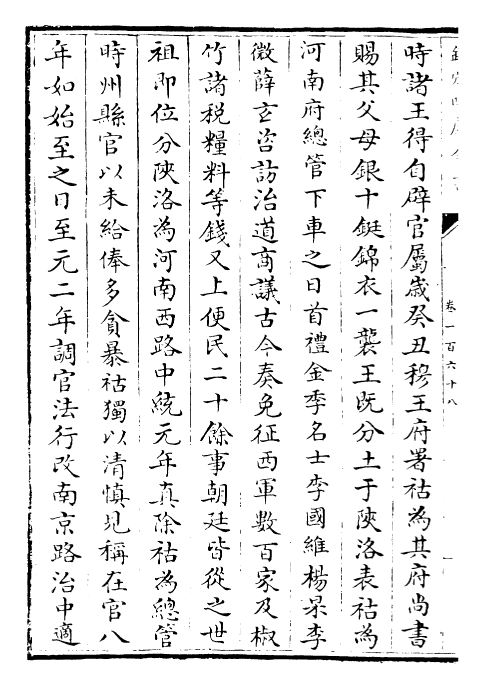 時諸王得自辟官屬歲癸丑穆王府署祜為其府尚書
賜其父母銀十鋌錦衣一襲王既分土于陜洛表祜為
河南府總管下車之日首禮金季名士李國維楊杲李
微薛玄咨訪治道商議古今奏免征西軍數百家及椒
竹諸税糧料等錢又上便民二十餘事朝廷皆從之世
祖即位分陜洛為河南西路中統元年真除祜為總管
時州縣官以未給俸多貪暴祜獨以清慎見稱在官八
年如始至之日至元二年調官法行改南京路治中適
卷一百六十八